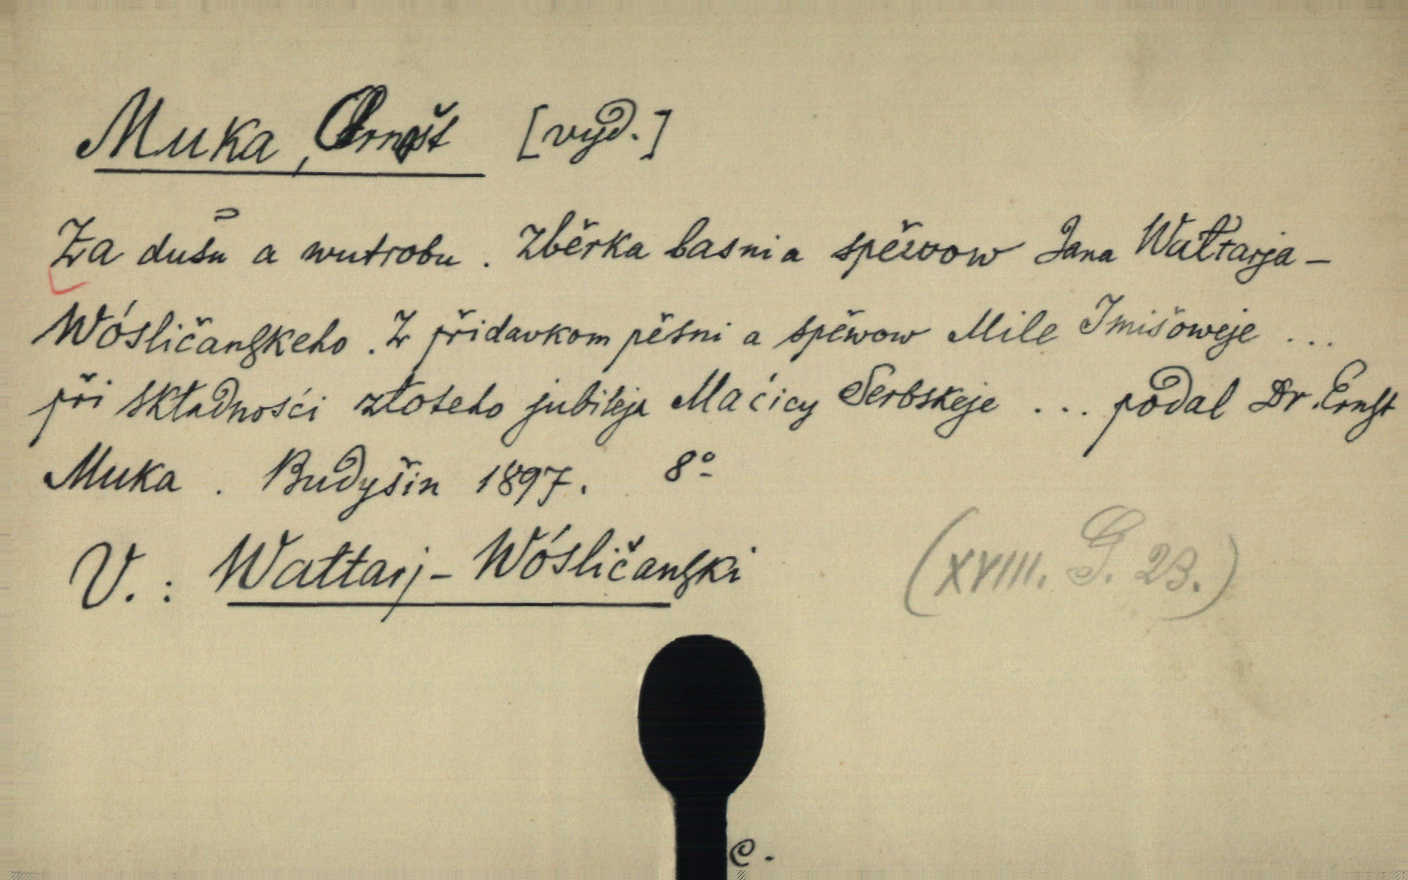 Muka, Arnošt [vyd.]
Za dušu a wutrobu. Zběrka basni a spěwow Jana Wałtarja-
Wósličanskeho. Z přidavkom pěsni a spěwow Mile Imišoweje ...
při składnosći złoteho jubileja Maćicy Serbskeje ... podal Dr. Ernst
Muka. Budyšin 1897. 8°
V.: Wałtarj-Wósličanski
(XVIII. G. 23.)
C.